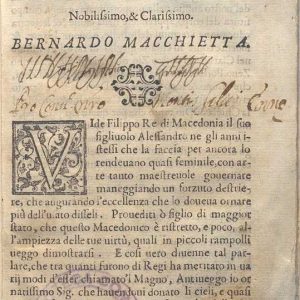 Nobilissimo, & Clarissimo.
BERNARDO MACCHIETTA.
VIde Filippo Re di Macedonia il suo
figliuolo Alessandro ne gli anni i-
stessi che la faccia per ancora lo
rendeuano quasi feminile, con ar-
te tanto maestreuole gouernare
maneggiando un forzuto destrie-
re, che augurando l'eccellenza che lo doueua ornare
più dell'auto disseli. Prouediti ò figlio di maggior
stato, che questo Macedonico è ristretto, e poco,
all'ampiezza delle tue virtù, quali in piccoli rampolli
ueggo dimostrarsi. E così uero diuenne tal par-
lare, che tra quanti furono di Regi ha meritato in ua
rij modi d'esser chiamato l Magno, Antiueggo io or
natissimo Sig. che hauete doni donato li cieli, e quasi